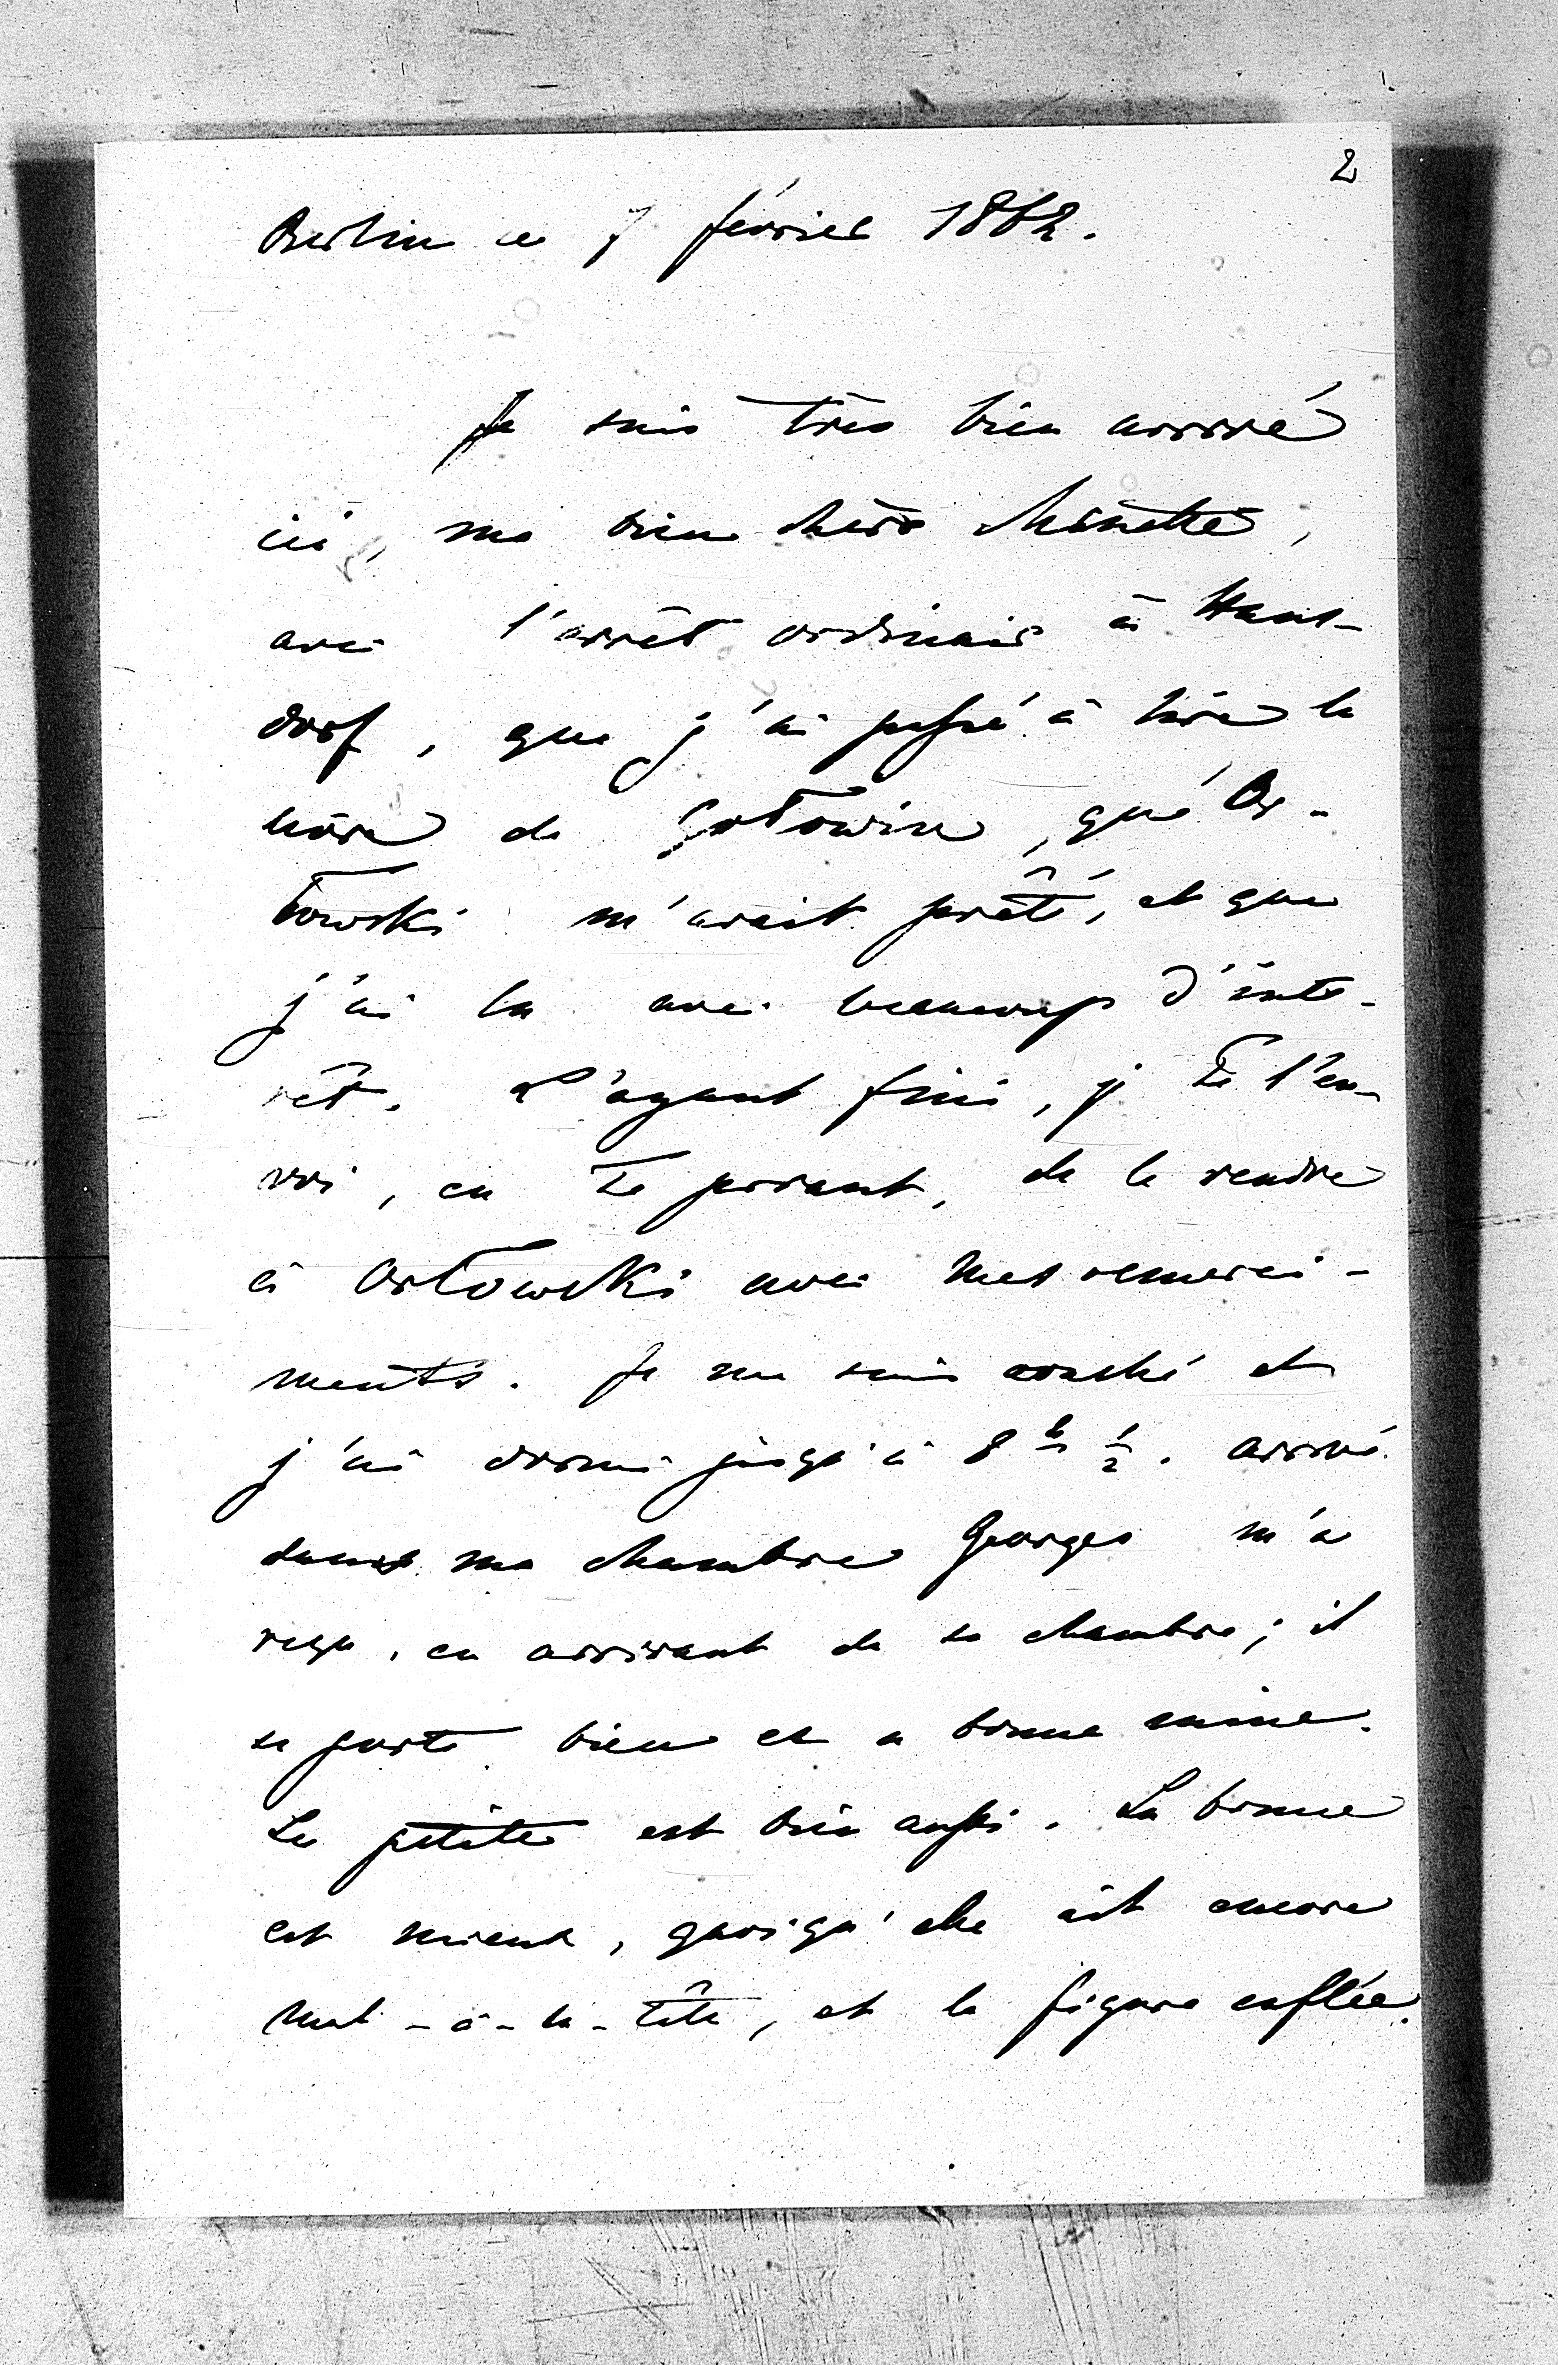 2
Berlin ce 7 février 1862.
Je suis très bien arrivé
ici, ma bien chère Minette,
avec l'arrêt ordinaire à Hans-
dorf, que j'ai passé à lire le
livre de Gołowin, que Or-
łowski m'avait prêté, et que
j'ai lu avec beaucoup d'inté-
rêt. L'ayant fini, je te l'en-
voi, en te priant, de le rendre
à Orłowski avec mes remerci-
ments. Je me suis couché et
j'ai dormi jusqu'à 8 h ½. arrivé
dans ma chambre Georges m'a
reçu, en arrivant de sa chambre; il
se porte bien et a bonne mine.
La petite est bien aussi. La bonne
est mieux, quoiqu'elle ait encore
mal-à-la-tête, et la figure enflée.